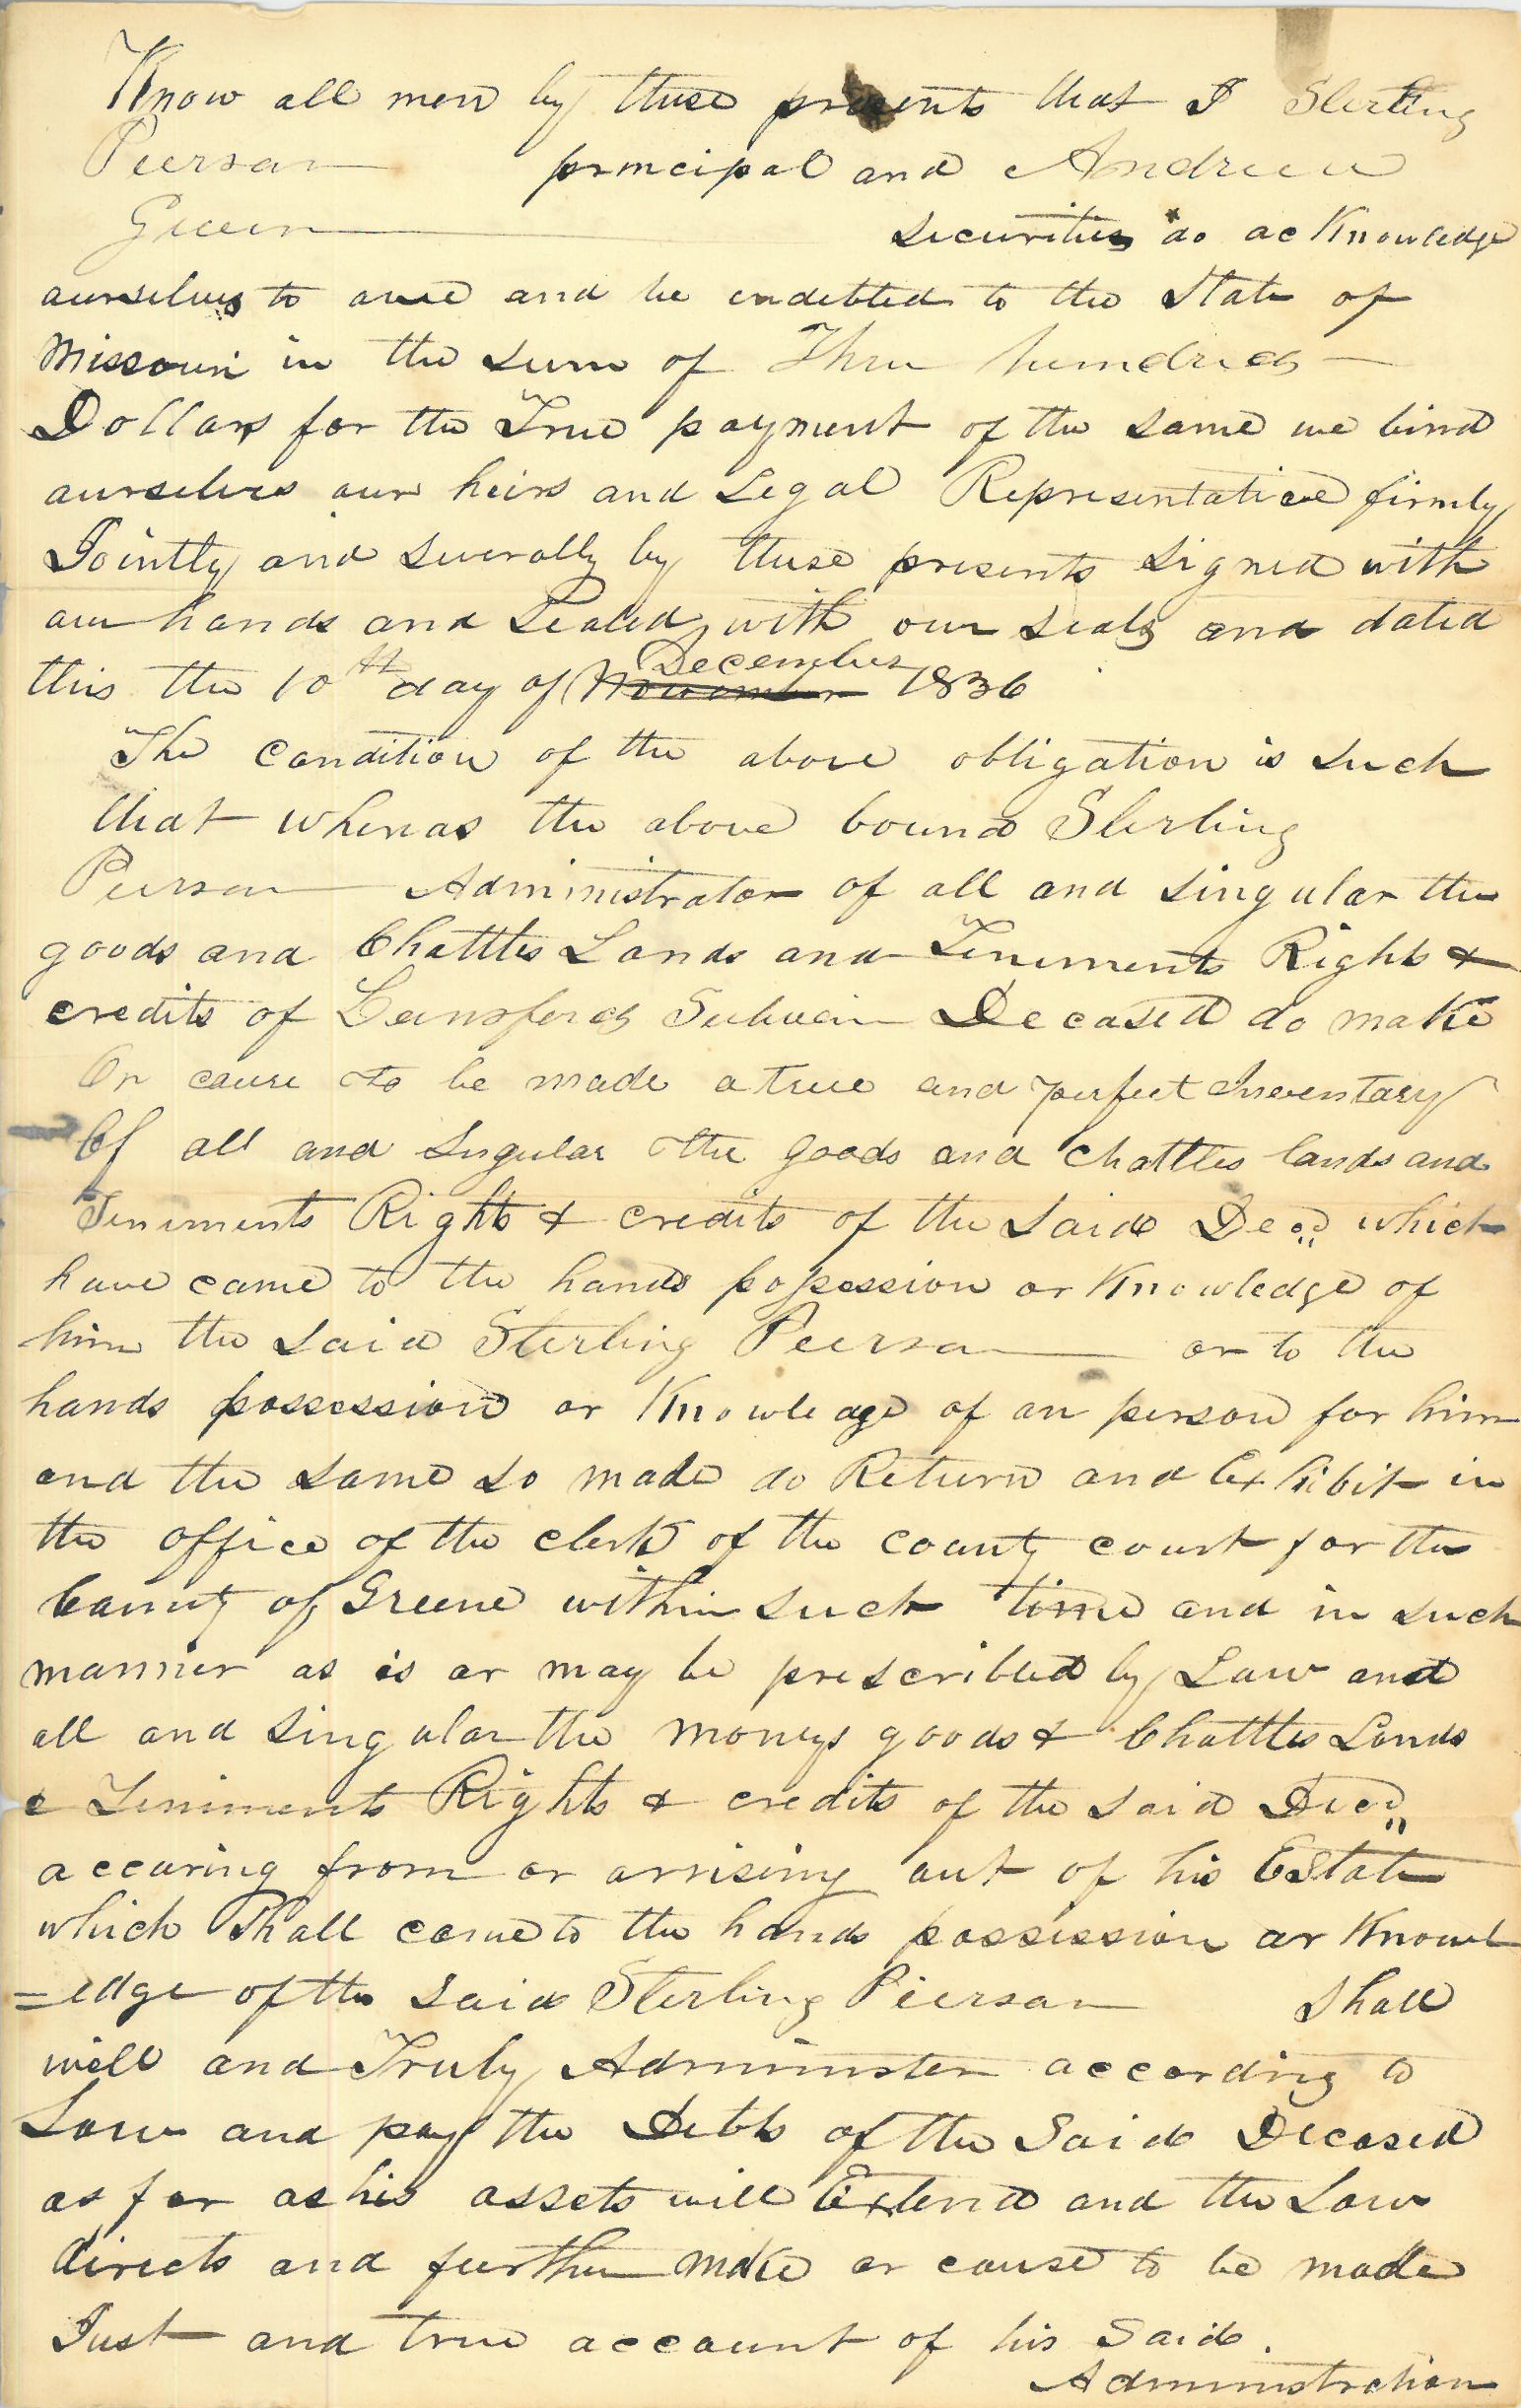 Know all men by these presents that I Sterling
Pierson principal and Andrew
Green securities do acKnowledge
ourselves to owe and be endebted to the State of
Missouri in the sum of Three hundred
Dollars for the True payment of the same we bind
ourselves our heirs and Legal Representative firmly
Jointly and severally by these presents signed with
our hands and sealed with our seals and dated
this the 10th day of November December 1836
The condition of the above obligation is such
that whereas the above bound Sterling
Pierson Administrator of all and singular the
goods and Chattles Lands and Tenements Rights &
credits of Decased do make
Or cause to be made a true and perfect Inventary
Of all and singular the goods and chattles lands and
Teniments Rights & credits of the said Decd which
have came to the hands possession or Knowledge of
him the said Sterling Pierson or to the
hands possession or Knowledge of an person for him
and the same so made do Return and Exhibit in
the office of the clerk of the county court for the
County of Greene within such time and in such
manner as is or may be prescribled by Law and
all and singular the moneys goods & Chattles Lands
& Teniments Rights & credits of the said Decd
accuring from or arrising out of his Estate
which shall come to the hands possession or Knowl
=edge of the said Sterling Pierson shall
well and Truly Administer according to
Law and pay the Debts of the Said Decased
as far as his assets will Extend and the Law
directs and further make or cause to be made
Just and true account of his Said.
Administration